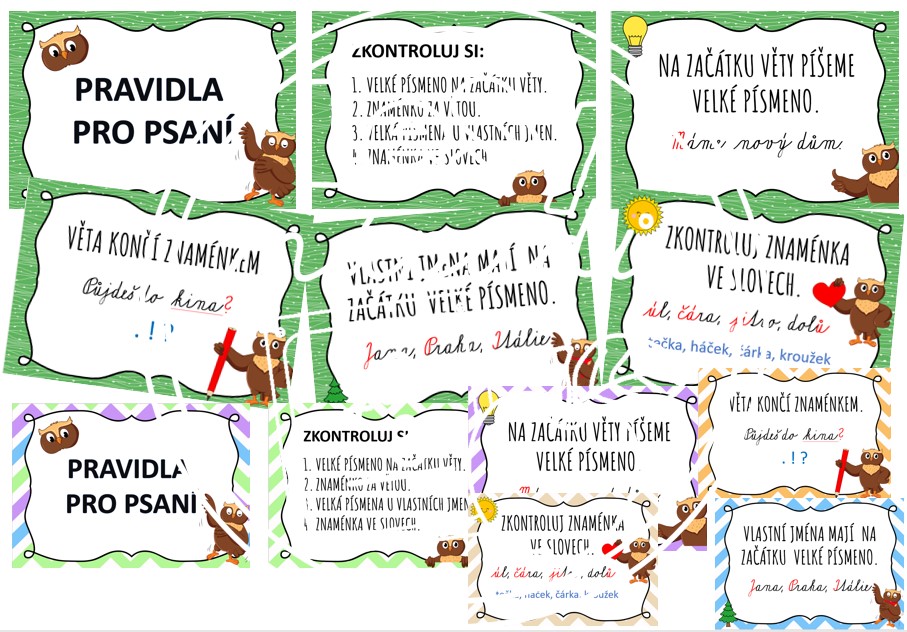 PRAVIDLA
PRO PSANÍ
ZKONTROLUJ SI:
1. VELKÉ PÍSMENO NA ZAČÁTKU VĚTY.
2. ZNAMÉNKO ZA VĚTOU.
3. VELKÁ PÍSMENA U VLASTNÍCH JMEN.
4. ZNAMÉNKA VE SLOVECH
NA ZAČÁTKU VĚTY PÍŠEME
VELKÉ PÍSMENO.
Máme nový dům.
VĚTA KONČÍ ZNAMÉNKEM
Půjdeš do kina?
. ! ?
VLASTNÍ JMÉNA MAJÍ NA
ZAČÁTKU VELKÉ PÍSMENO.
Jana, Praha, Itálie
ZKONTROLUJ ZNAMÉNKA
VE SLOVECH.
úl, čára, jitro, dolů
tečka, háček, čárka, kroužek
PRAVIDLA
PRO PSANÍ
ZKONTROLUJ SI
1. VELKÉ PÍSMENO NA ZAČÁTKU VĚTY.
2. ZNAMÉNKO ZA VĚTOU.
3. VELKÁ PÍSMENA U VLASTNÍCH JMEN
4. ZNAMÉNKA VE SLOVECH.
NA ZAČÁTKU VĚTY PÍŠEME
VELKÉ PÍSMENO
VĚTA KONČÍ ZNAMÉNKEM.
Půjdeš do kina?
. ! ?
ZKONTROLUJ ZNAMÉNKA
VE SLOVECH.
úl, čára, jitro, dolů
tečka, háček, čárka, kroužek
VLASTNÍ JMÉNA MAJÍ NA
ZAČÁTKU VELKÉ PÍSMENO.
Jana, Praha, Itálie